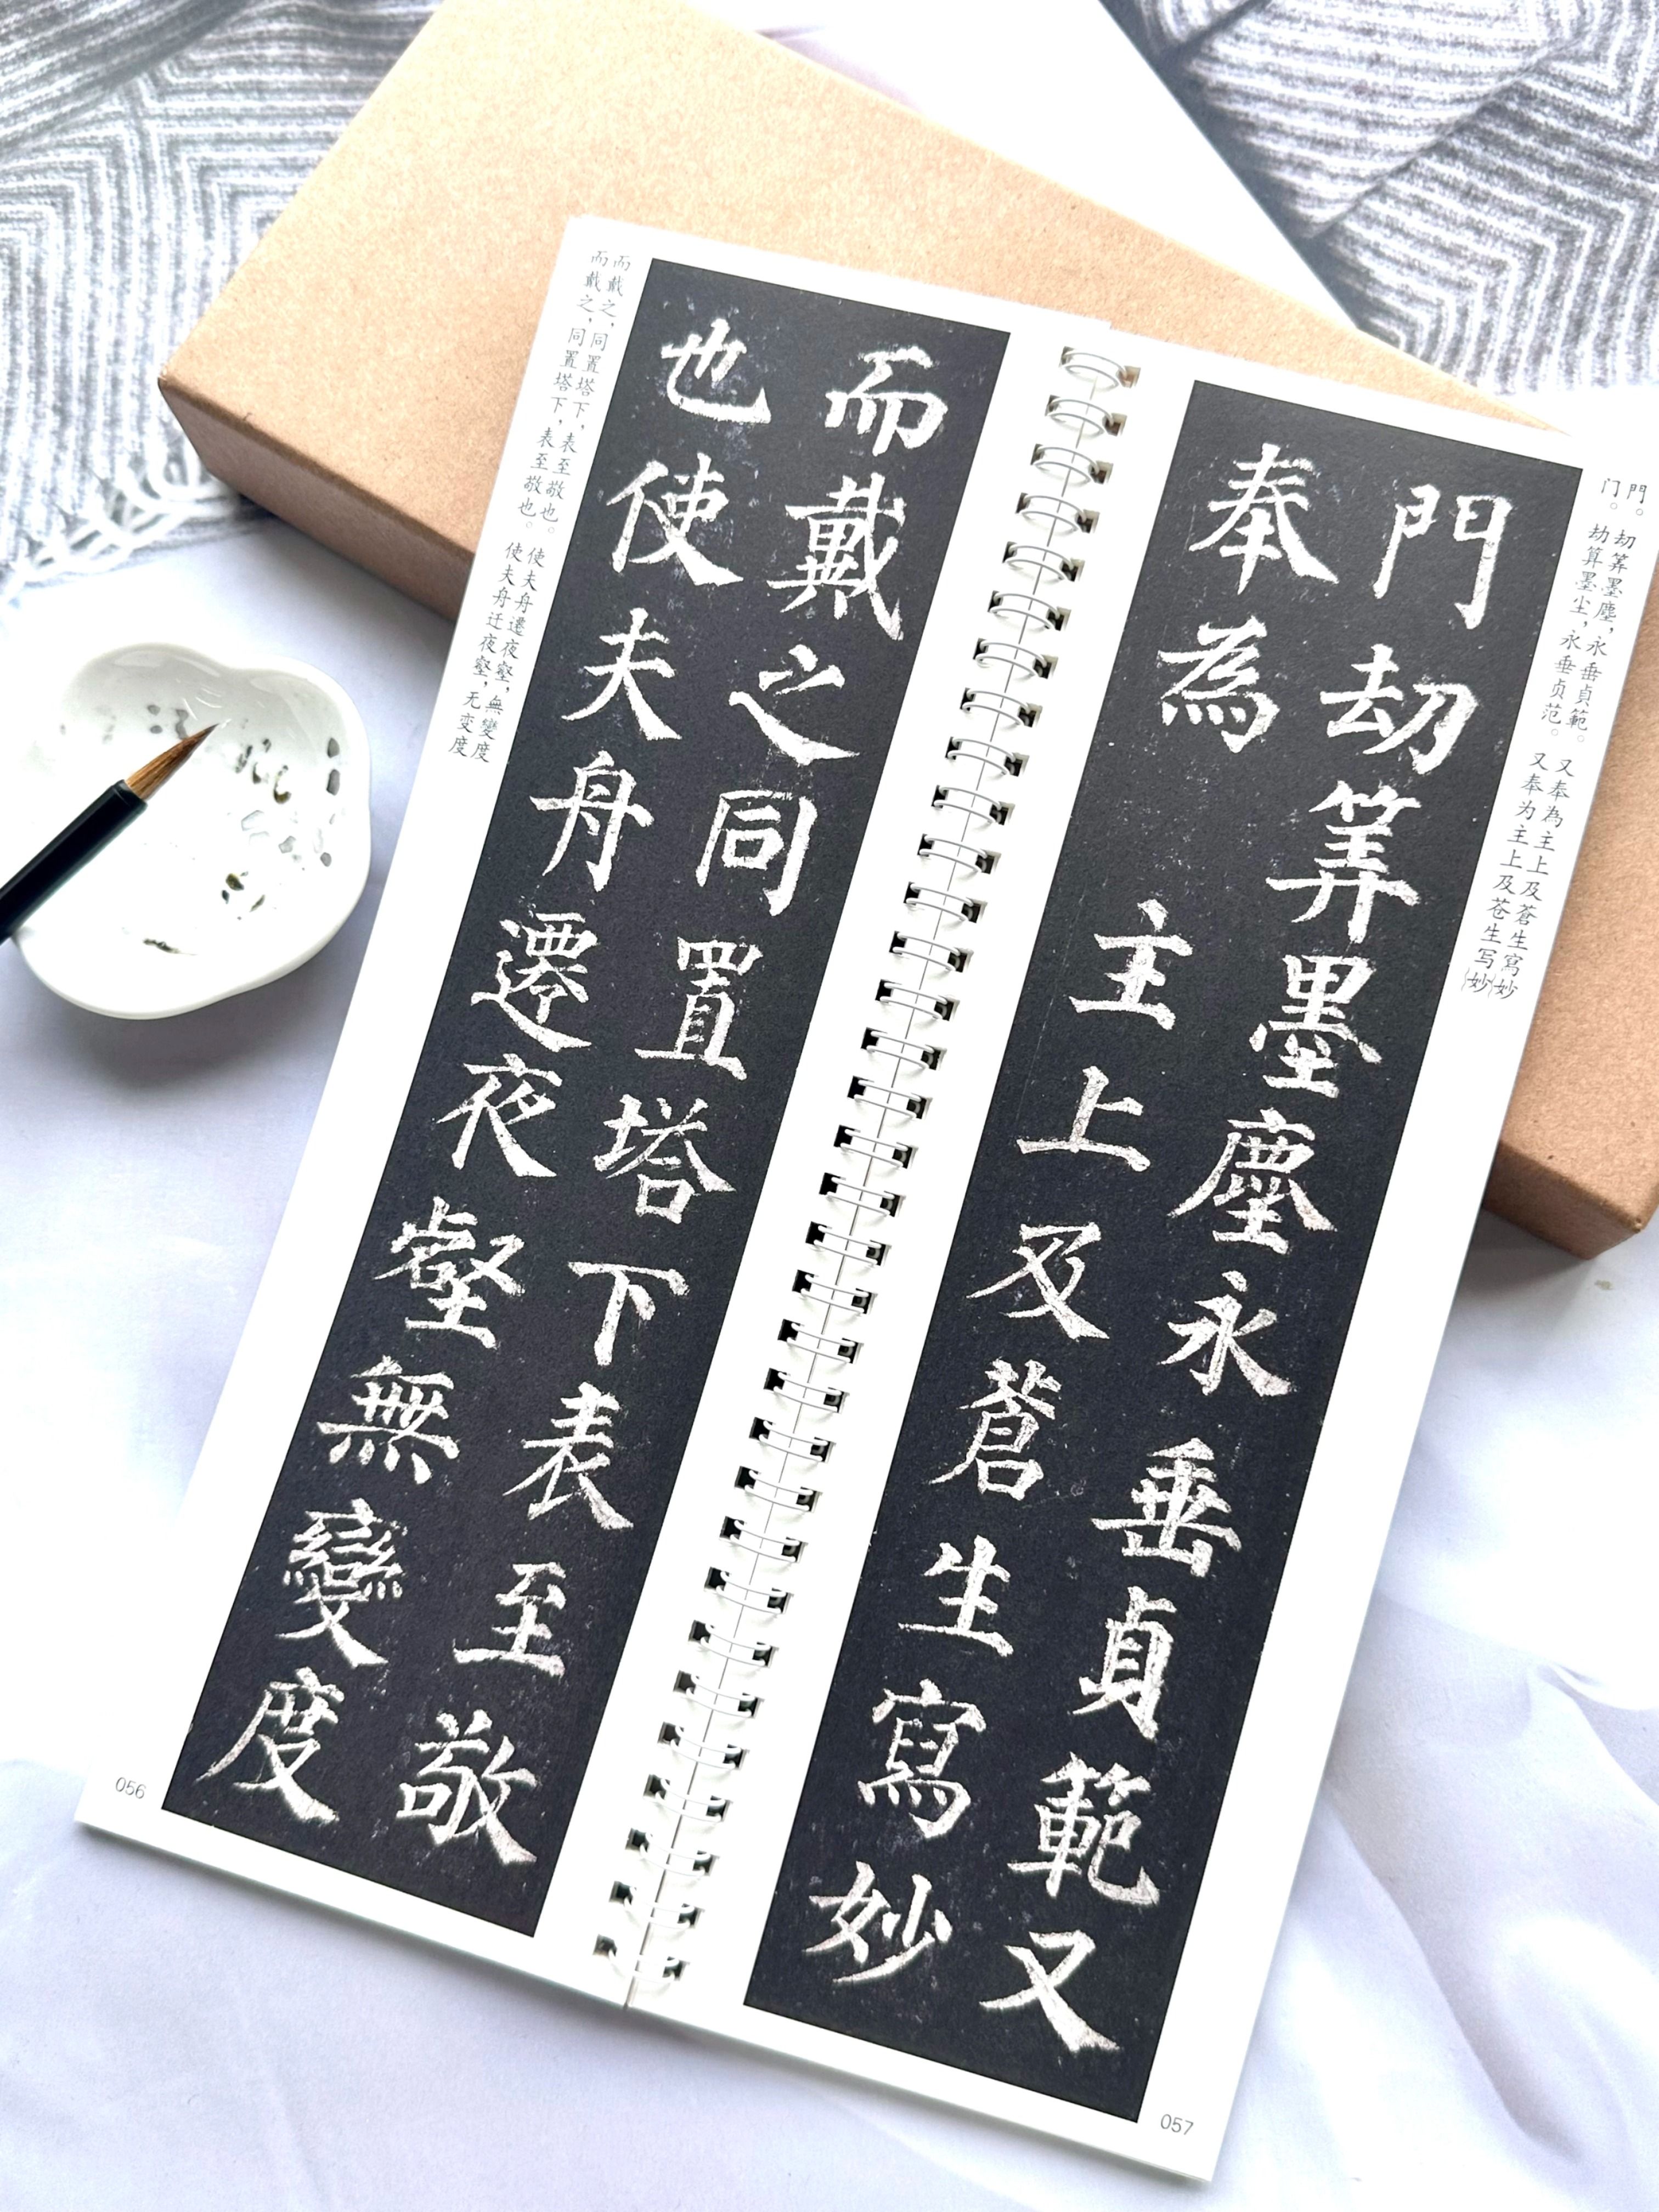 而戴之同置塔下表至敬
也使夫舟遷夜壑無變度
而戴之，同置塔下，表至敬也。使夫舟遷夜壑，無變度
而戴之，同置塔下，表至敬也。使夫舟迁夜壑，无变度
056
門劫筭墨塵永垂貞範又
奉為主上及蒼生寫妙
門。劫筭墨塵，永垂貞範。又奉為主上及蒼生寫(妙
门。劫算墨尘，永垂贞范。又奉为主上及苍生写(妙
057